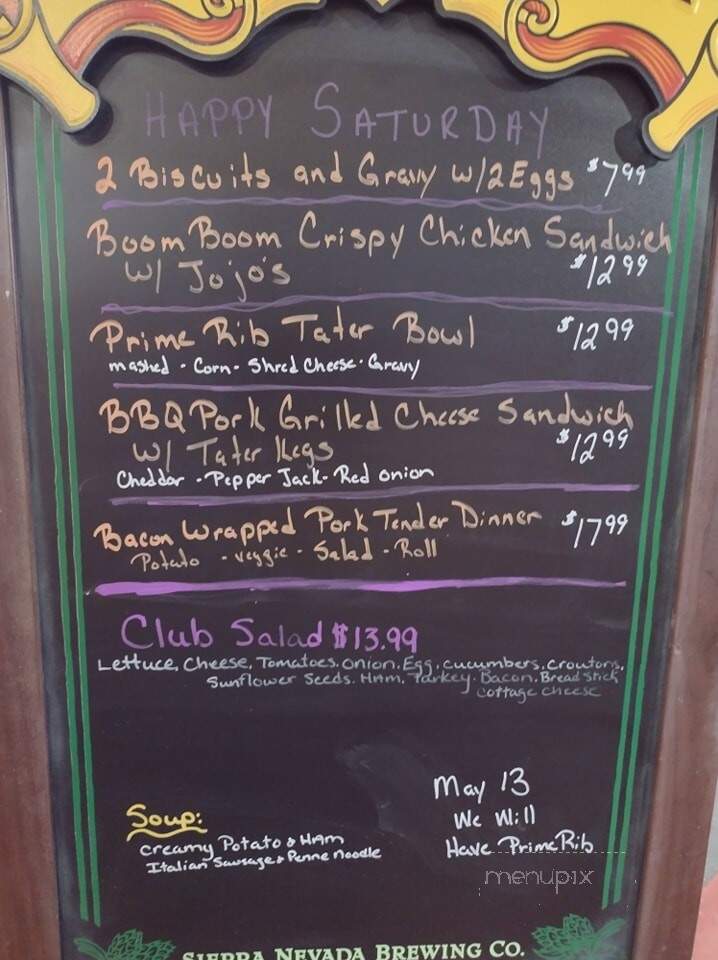 HAPPY SATURDAY
2 Biscuits and Gravy w/2 Eggs $7.99
Boom Boom Crispy Chicken Sandwich
w/ Jo'jo's $12.99
Prime Rib Tater Bowl $12.99
mashed - Corn - Shred Cheese - Gravy
BBQ Pork Grilled Cheese Sandwich
w/ Tater Kegs $12.99
Cheddar - Pepper Jack - Red onion
Bacon Wrapped Pork Tender Dinner $17.99
Potato - veggie - Salad - Roll
Club Salad $13.99
Lettuce, Cheese, Tomatoes, onion, Egg, cucumbers, croutons,
Sunflower Seeds. HAM. Turkey. Bacon. Bread Stick
cottage cheese
May 13
We Will
Have Prime Rib
Soup:
creamy Potato & HAM
Italian Sausage & Penne Noodle
menupix
SIERRA NEVADA BREWING CO.